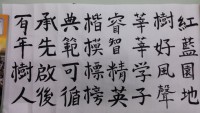 紅藍園地
樹好風聲
莘莘学子
睿智精英
楷模標榜
典範可循
承先啟後
百年樹人